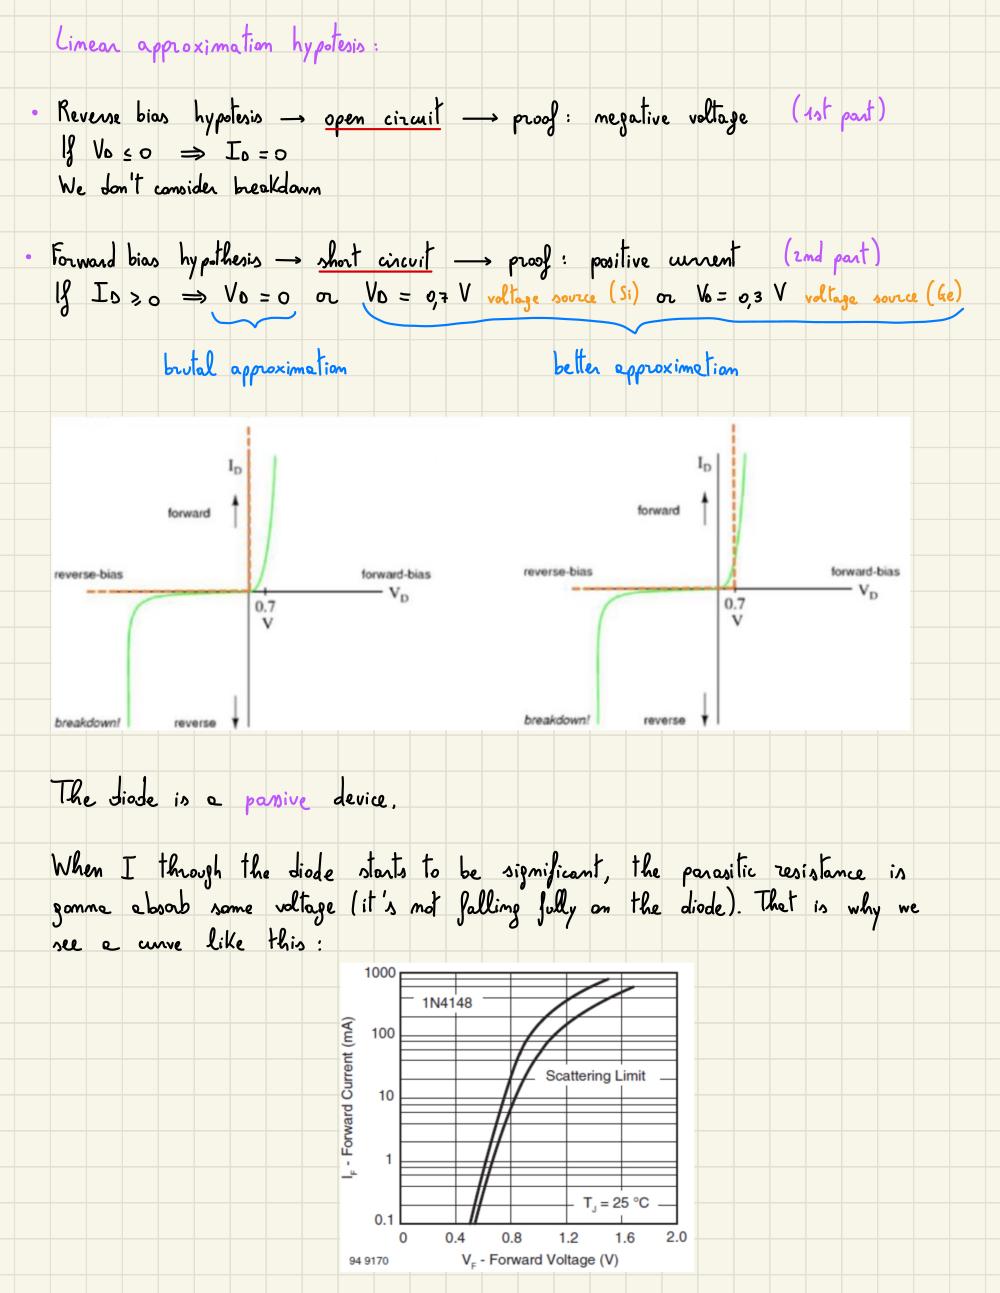 Linear approximation hypotesis :
• Reverse bias hypotesis → open circuit → proof : negative voltage (1st part)
If VD ≤ 0 ⇒ ID = 0
We don't consider breakdown
• Forward bias hypothesis → short circuit → proof : positive current (2nd part)
If ID ≥ 0 ⇒ VD = 0 or VD = 0,7 V voltage source (Si) or VD = 0,3 V voltage source (Ge)
brutal approximation better approximation
ID
forward
reverse-bias forward-bias
VD
0.7
V
breakdown! reverse
ID
forward
reverse-bias forward-bias
VD
0.7
V
breakdown! reverse
The diode is a passive device.
When I through the diode starts to be significant, the parasitic resistance is
gonna absorb some voltage (it's not falling fully on the diode). That is why we
see a curve like this :
1000
1N4148
100
Scattering Limit
10
1
TJ = 25 °C
0.1
IF - Forward Current (mA)
0 0.4 0.8 1.2 1.6 2.0
94 9170 VF - Forward Voltage (V)